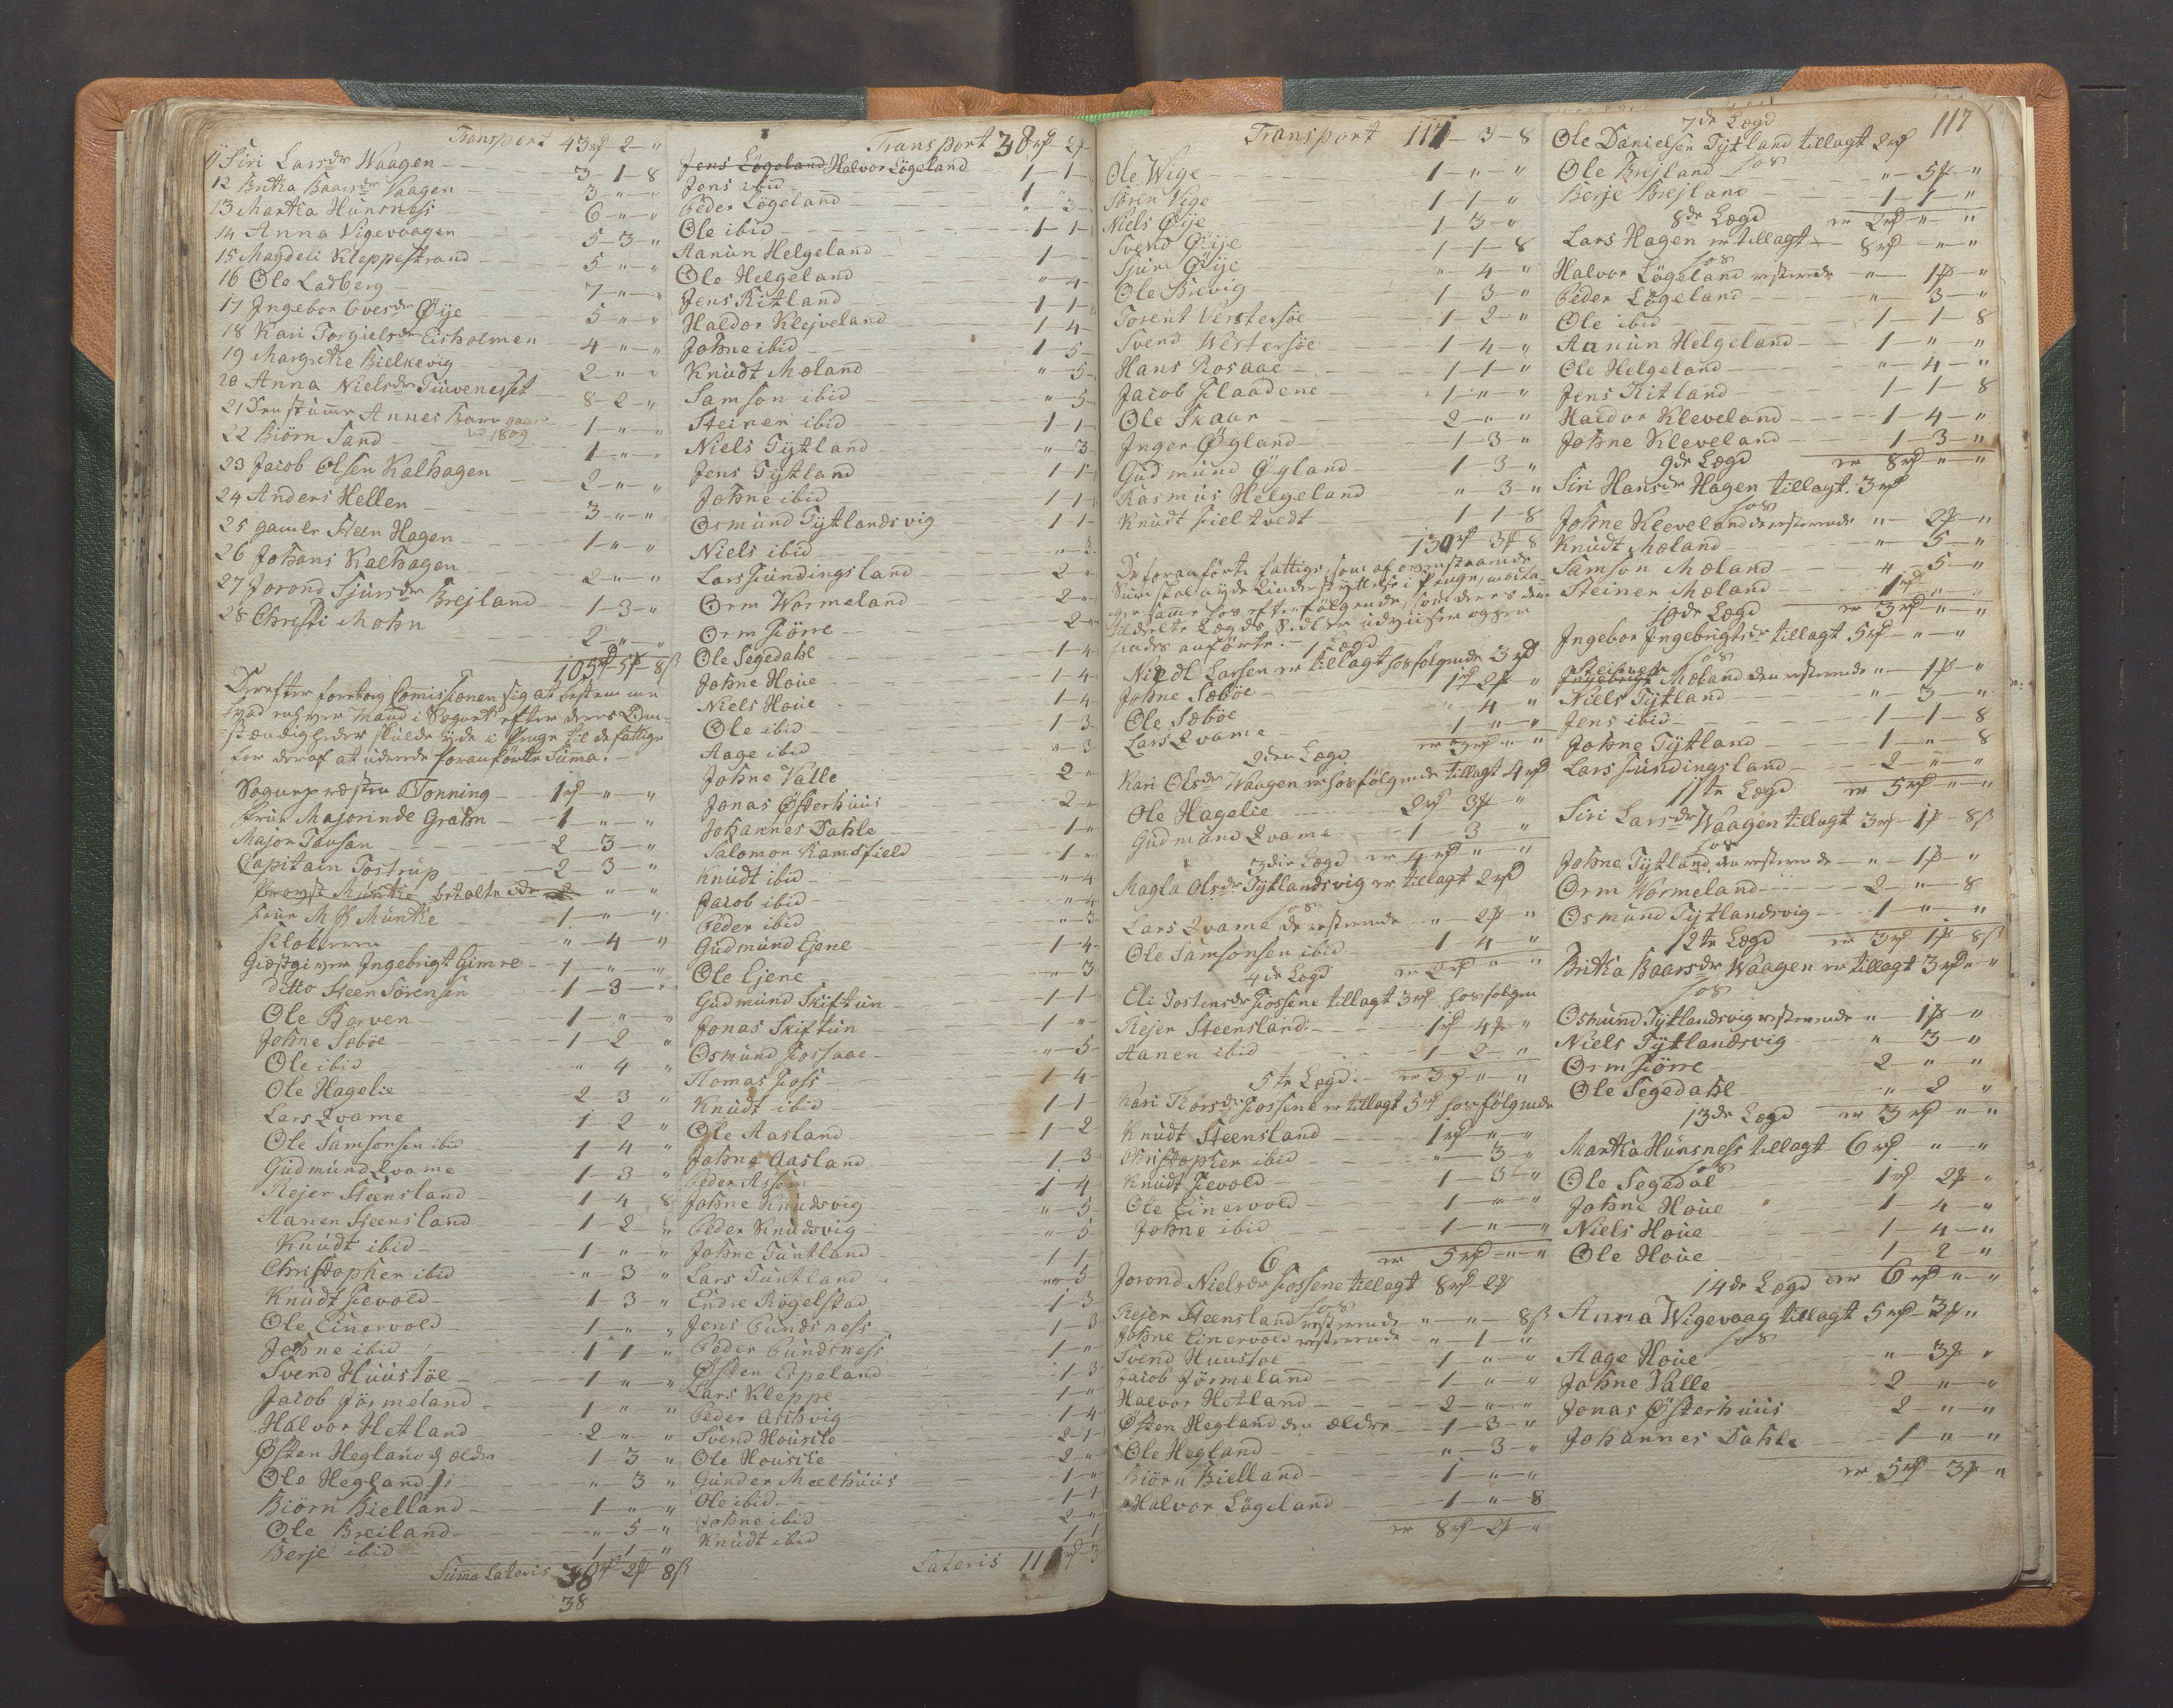 Transport 43rd 2 "
11 Siri Larsdr Waagen 3-1-8
12 Britha Baarsdr Vaagen 3-"-"
13 Martha Hünsness 6-"-"
14 Anna Vigevaagen 5-3-"
15 Magdeli Kleppestrand 5-"-"
16 Ole Ladberg 7-"-"
17 Ingebor Ovesdr Øije 5-"-"
18 Kari Torgielsdr Eisholmen 4-"-"
19 Margrethe Bielkevig 2-"-"
20 Anna Nielsdr Tüvenesset 8-2-"
21 Den stüme Annes Barn 1-"-"
1809
22 Biörn Sand 1-"-"
23 Jacob Olsen Kalhagen 2-"-"
24 Anders Hellen 3-"-"
25 gamle Steen Hagen 1-"-"
26 Johans Kalhagen 2-"-"
27 Jorond Sjürsdr Brejland 1-3-"
28 Christi Mohn 2-"-"
105rd-5f-8s
Derefter foretog Comissionen sig at bestemme
hvad enhver Mand i Sognet efter deres Om-
stændigheder skulde yde i Penge til de fattige
for deraf at udrede foranførte Suma.
Sognepræsten Tonning 1rd-"-"
Frue Majorinde Grahn 1-"-"
Major Tausan 2-3-"
Capitain Tostrup 2-3-"
Provst Münthe betalte "-"
Frue Münthe 1-"-"
Klokkeren "-4-"
Giestgiver Ingebrigt Gimre 1-"-"
ditto Steen Sörensen 1-3-"
Ole Barven 1-"-"
Johne Sæbøe 1-2-"
Ole ibid "-4-"
Ole Hagelie 2-3-"
Lars Qvame 1-2-"
Ole Samsonsen ibid 1-4-"
Gudmund Qvame 1-3-"
Rejer Steensland 1-4-8
Aanen Steensland 1-2-"
Knüdt ibid 1-"-"
Christopher ibid "-3-"
Knüdt Fievold 1-3-"
Ole Einervold 1-"-"
Johne ibid 1-1-"
Svend Hüüstöe 1-"-"
Jacob Jörmeland 1-"-"
Halvor Hetland 2-"-"
Østen Hegland d ældre 1-3-"
Ole Hegland "-3-"
Biörn Bielland 1-"-"
Ole Breiland "-5-"
Berje ibid 1-1-"
Suma Lateris 38rd-2f-8s
38
Transport 38rd 2f
Jens Lögeland Halvor Lögeland 1-1-
Jens ibid 1-"
Peder Lögeland "-3-
Ole ibid 1-1-
Aanün Helgeland 1-"-
Ole Helgeland "-4-
Jens Ritland 1-1-
Haldor Klejveland 1-4-
Johne ibid 1-5-
Knüdt Mæland "-5-
Samson ibid "-5-
Steiner ibid 1-1-
Niels Tÿtland "-3
Jens Tÿtland 1-1-
Johne ibid 1-1-
Osmünd Tÿtlandsvig 1-1-
Niels ibid "-3-
Lars Fündingsland 2-"
Orm Wormeland 2-"
Orm Fiörre 2-"
Ole Segedahl 1-4
Johne Hoüe 1-4
Niels Hoüe 1-4
Ole ibid 1-3
Aage ibid "-3
Johne Valle 2-"
Jonas Østerhüüs 2-"
Johannes Dahle 1-"
Salomon Ramsfield 1-"
Knüdt ibid "-4
Jacob ibid "-4
Peder ibid "-3
Gudmünd Ejene 1-4
Ole Ejene "-3
Gudmünd Skiftün 1-1
Jonas Skiftün 1-"
Osmünd Fossaae "-5
Thomas Foss 1-4
Knüdt ibid 1-1
Ole Aasland 1-2
Johne Aasland 1-3
Peder Assem 1-4
Johne Knüdsvig "-5
Peder Knüdsvig "-5
Johne Tüntland 1-1
Lars Tüntland "-5
Endre Rögelstad 1-3
Jens Pundsness 1-3
Peder Pundsness 1-"
Østen Espeland 1-3
Lars Kleppe 1-"
Peder Arthvig 1-4
Svend Housile 2-1
Ole Housile 2-"
Günder Mælhüüs 1-"
Ole ibid 1-1
Johne ibid 2-"
Knüdt ibid 1-1
Lateris 111rd-3
Transport 111-3-8
Ole Wige 1-"-"
Sören Vige 1-1-"
Niels Øije 1-3-"
Svend Øije 1-1-8
Sjür Øije "-4-"
Ole Brevig 1-3-"
Torent Verstersöe 1-2-"
Svend Westersöe 1-4-"
Hans Rosaae 1-1-"
Jacob Flaadene 1-"-"
Ole Skaar 2-"-"
Inger Øgland 1-3-"
Gudmünd Øgland 1-3-"
Rasmus Helgeland "-3-"
Knüdt Fieltvedt 1-1-8
130rd-3f-8
De foranførte fattige, som af ovenstaaende
Sum skal nyde Understyttelse i Penge, modta-
ger samme hos efterfölgende, som deres dem
tildeelte Lægds Sedler udviiser og her
anförte. 1 Lægd
Niedl Larsen er tillagt hos folgende 3rd
Johne Sæböe 1rd 2f "
Ole Sæböe "-4-"
Lars Qvame 1-"-"
er 3rd-"-"
2den Lægd
Kari Olsdr Waagen er hos følgende tillagt 4rd
Ole Hagelie 2rd 3f "
Gudmünd Qvame 1-3-"
3die Lægd er 4rd-"-"
Magla Olsdr Tÿtlandsvig er tillagt 2rd
hos
Lars Qvame de resterende "-2f-"
Ole Samsonsen ibid 1-4-"
4de Lægd er 2rd-"-"
Eli Tostensdr Fossene tillagt 3rd hos folgen
Rejer Steensland 1rd-4f-"
Aanen ibid 1-2-"
5te Lægd er 3rd-"-"
Kari Thorsdr Fossene er tillagt 5rd hos følgende
Knüdt Steensland 1rd-"-"
Christopher ibid "-3-"
Knüdt Fievold 1-3-"
Ole Einervold 1-"-"
Johne ibid 1-"-"
6 er 5rd-"-"
Jorond Nielsdr Fossene tillagt 8rd-2f
hos
Rejer Steensland resterende "-"-8s
Johne Einervold resterende "-1-"
Svend Huustoe 1-"-"
Jacob Jörmeland 1-"-"
Halvor Hetland 2-"-"
Østen Hegland den ældre 1-3-"
Ole Hegland "-3-"
Biörn Bielland 1-"-"
Halvor Lögeland 1-"-8
er 8rd-2f-"
117
7de Lægd
Ole Danielsen Tÿtland tillagt 2rd
hos
Ole Brejland "-5f-"
Berje Brejland 1-1-"
8de Lægd er 2rd-"-"
Lars Hagen er tillagt 8rd-"-"
hos
Halvor Lögeland resterende "-1f-"
Peder Lögeland "-3-"
Ole ibid 1-1-8
Aanün Helgeland 1-"-"
Ole Helgeland "-4-"
Jens Ritland 1-1-8
Haldor Kleveland 1-4-"
Johne Kleveland 1-3-"
9de Lægd er 8rd-"-"
Siri Hansdr Hagen tillagt 3rd
hos
Johne Kleeveland de resterende "-2f-"
Knüdt Mæland "-5-"
Samson Mæland "-5-"
Steiner Mæland 1rd-"-"
10de Lægd er 3rd-"-"
Ingebor Ingebrigtsdr tillagt 5rd-"-"
hos
Steiner Mæland den resterende "-1f-"
Niels Tÿtland "-3-"
Jens ibid 1-1-8
Johne Tÿtland 1-"-8
Lars Fündingsland 2-"-"
11te Lægd er 5rd-"-"
Siri Larsdr Waagen tillagt 3rd-1f-8s
hos
Johne Tÿtland den resterende "-1f-"
Orm Wormeland 2-"-8
Osmünd Tÿtlandsvig 1-"-"
12te Lægd er 3rd 1f 8s
Britha Baarsdr Waagen er tillagt 3rd-"-"
hos
Osmünd Tÿtlandsvig resterende "-1f-"
Niels Tÿtlandsvig "-3-"
Orm Fiörre 2-"-"
Ole Segedahl "-2-"
13de Lægd er 3rd-"-"
Martha Hünsness tillagt 6rd-"-"
hos
Ole Segedal 1rd 2f "
Johne Hoüe 1-4-"
Niels Hoüe 1-4-"
Ole Hoüe 1-2-"
14de Lægd er 6rd-"-"
Anna Wigevaag tillagt 5rd-3f-"
hos
Aage Hoüe "-3f-"
Johne Valle 2-"-"
Jonas Østerhüüs 2-"-"
Johannes Dahle 1-"-"
er 5rd-3f-"